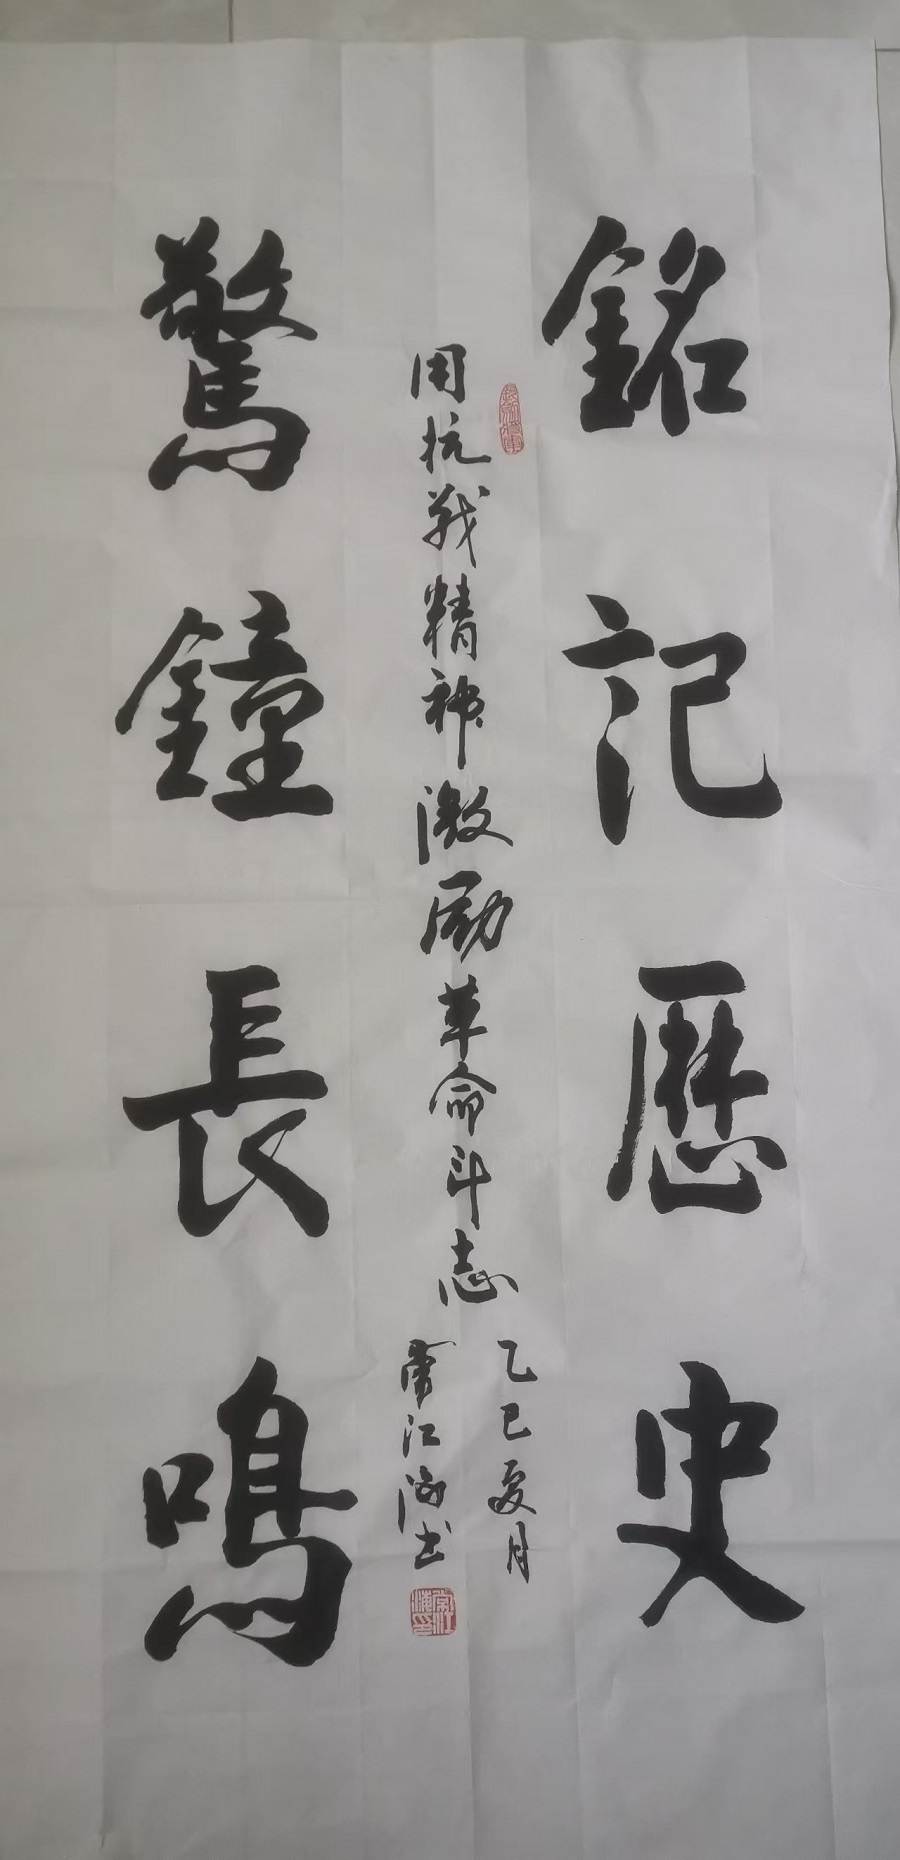 銘記歷史
用抗战精神激励革命斗志
乙巳夏月
常江海书
驚鐘長鳴